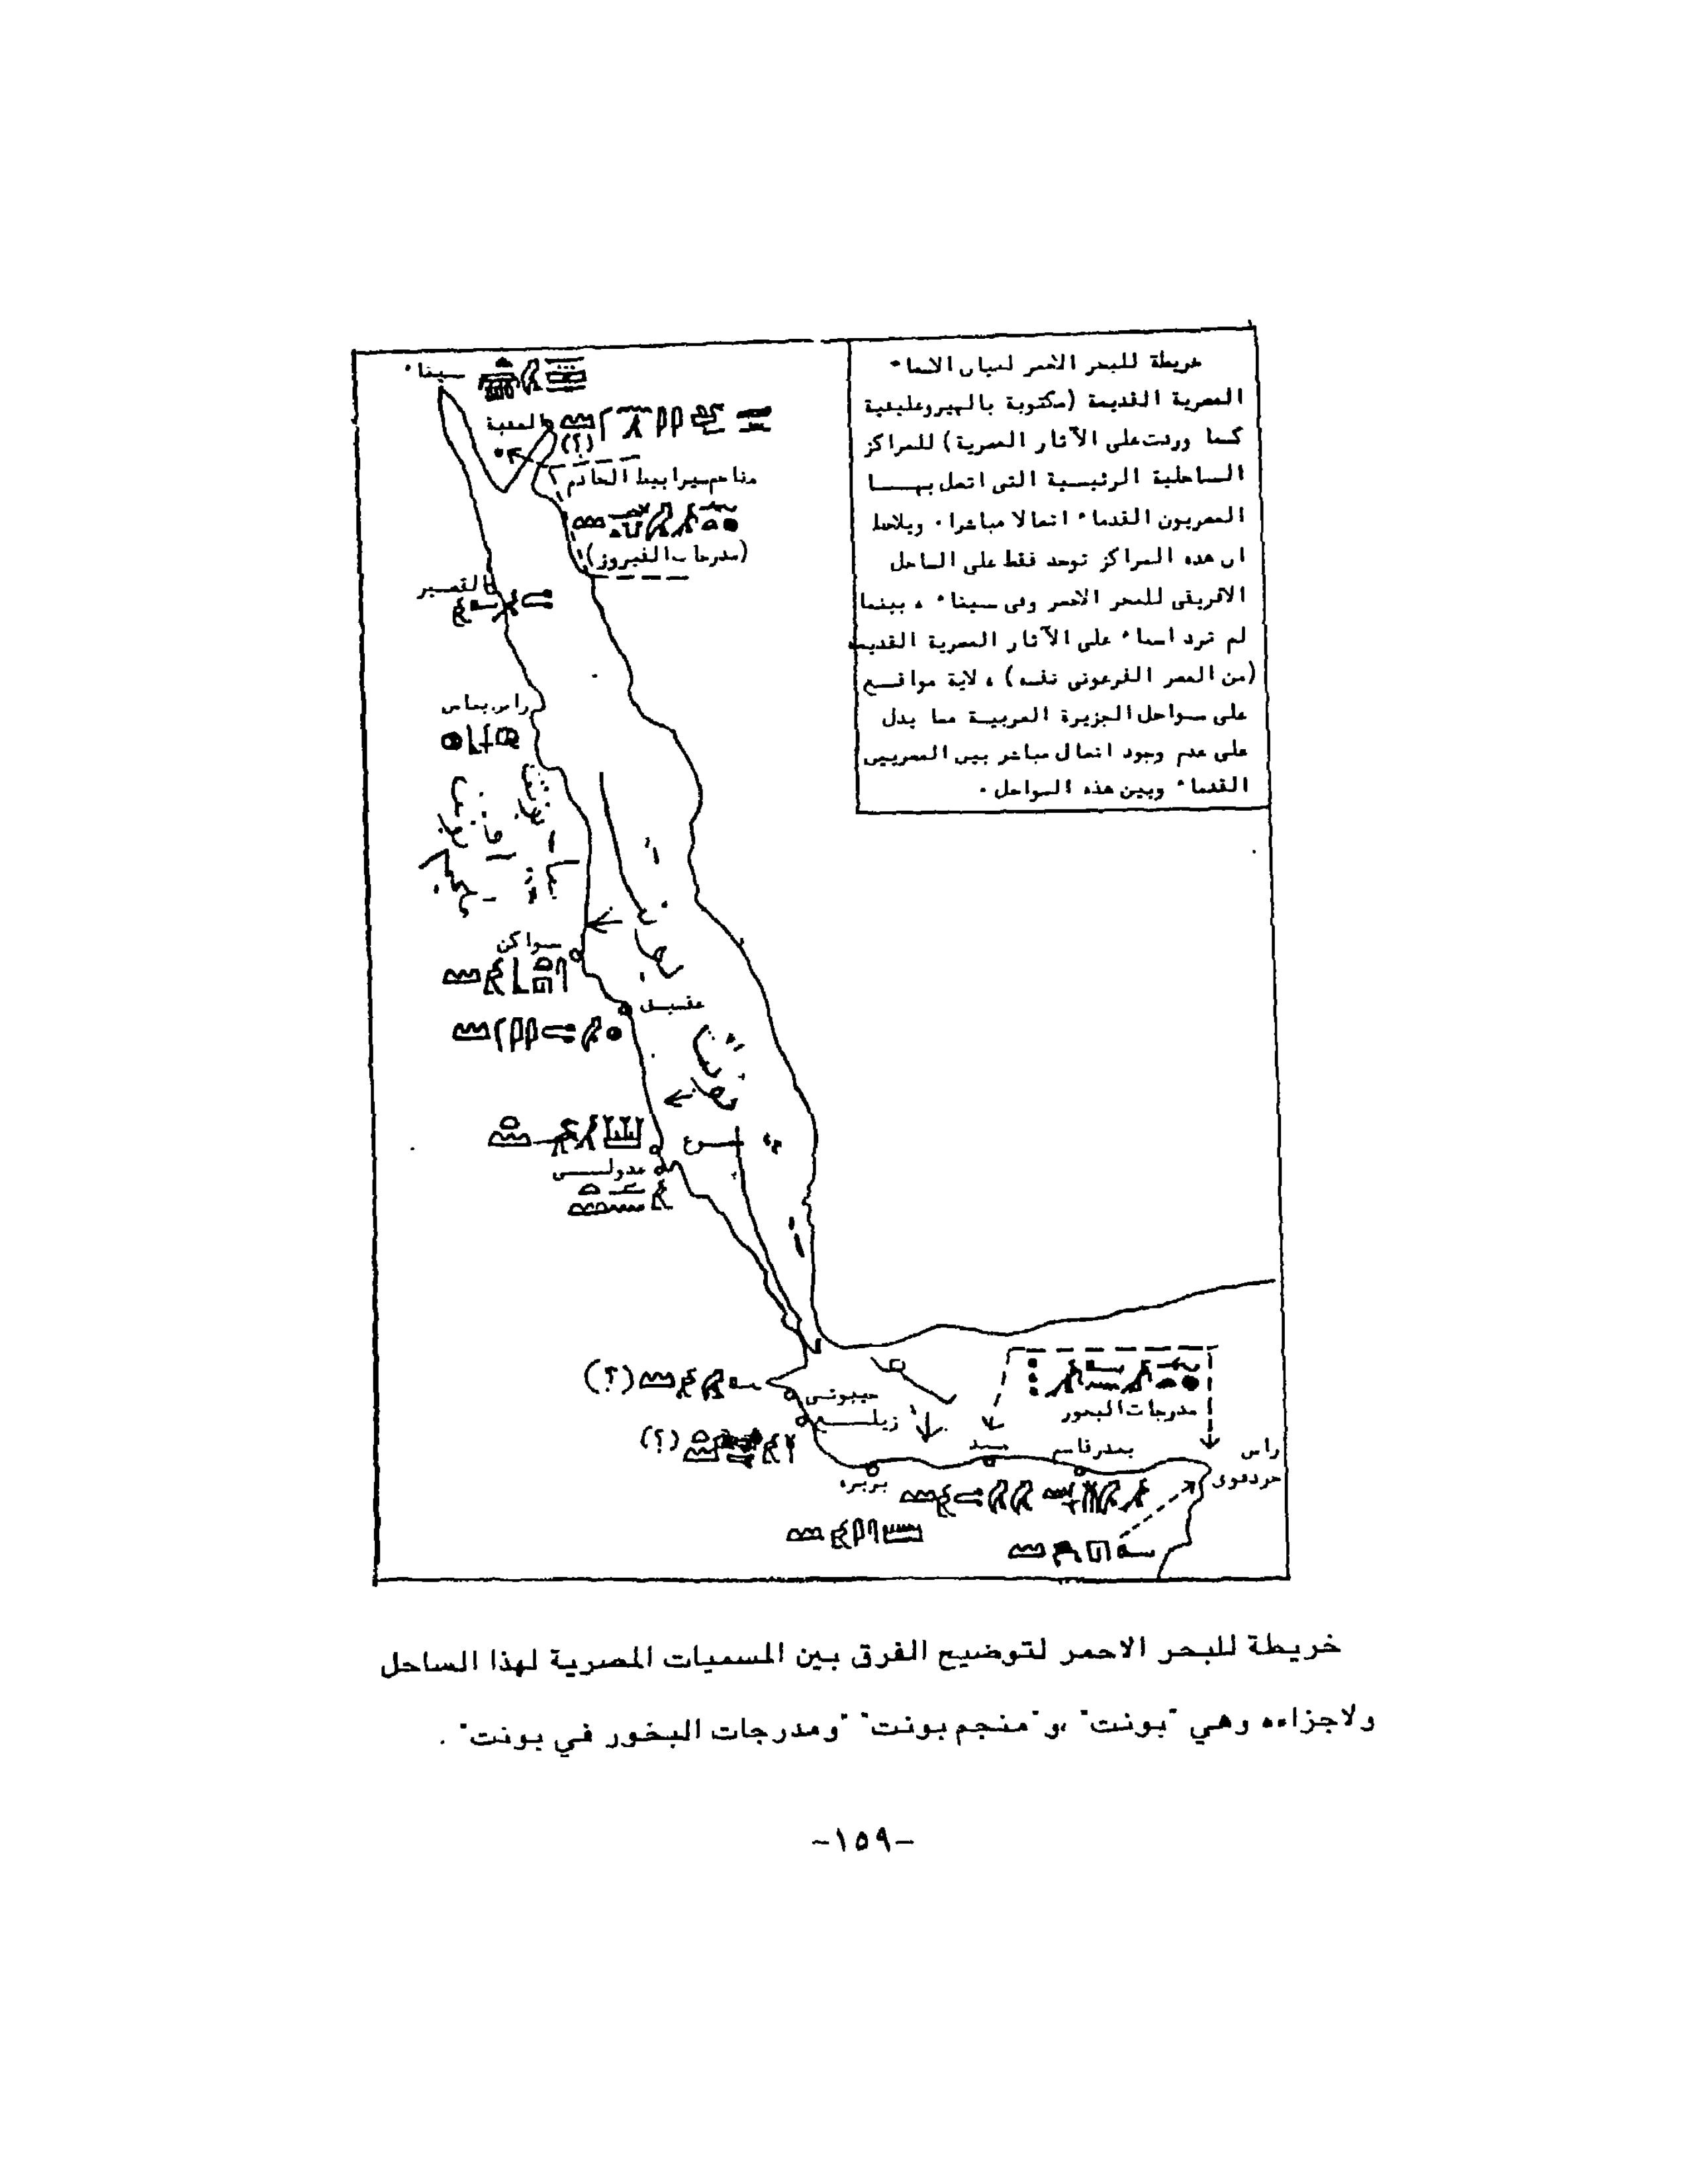 خريطة للبحر الاحمر لبيان الاسماء
المصرية القديمة (مكتوبة بالهيروغليفية
كما وردت على الآثار المصرية) للمراكز
الساحلية الرئيسية التى اتصل بهـــا
المصريون القدماء اتصالا مباشرا. ويلاحظ
ان هذه المراكز توجد فقط على الساحل
الافريقى للبحر الاحمر وفى سيناء ، بينما
لم ترد اسماء على الآثار المصرية القديمة
(من العصر الفرعونى نفسه) ، لاية مواقــع
على سواحل الجزيرة العربيــة مما يدل
على عدم وجود اتصال مباشر بين المصريين
القدماء وبين هذه السواحل .
سيناء
العقبة
(؟)
مناجم سيرابيط الخادم
(مدرجات الفيروز)
القصير
راس بناس
سواكن
عقيـق
عدولـــى
(؟)
جيبوتـى
زيلـــع
(؟)
مدرجات البخور
راس
بندر قاسم
بربره
خريطة للبحر الاحمر لتوضيح الفرق بين المسميات المصرية لهذا الساحل
ولاجزاءه وهي "بونت" ،و"منجم بونت" "ومدرجات البخور في بونت" .
-١٥٩-